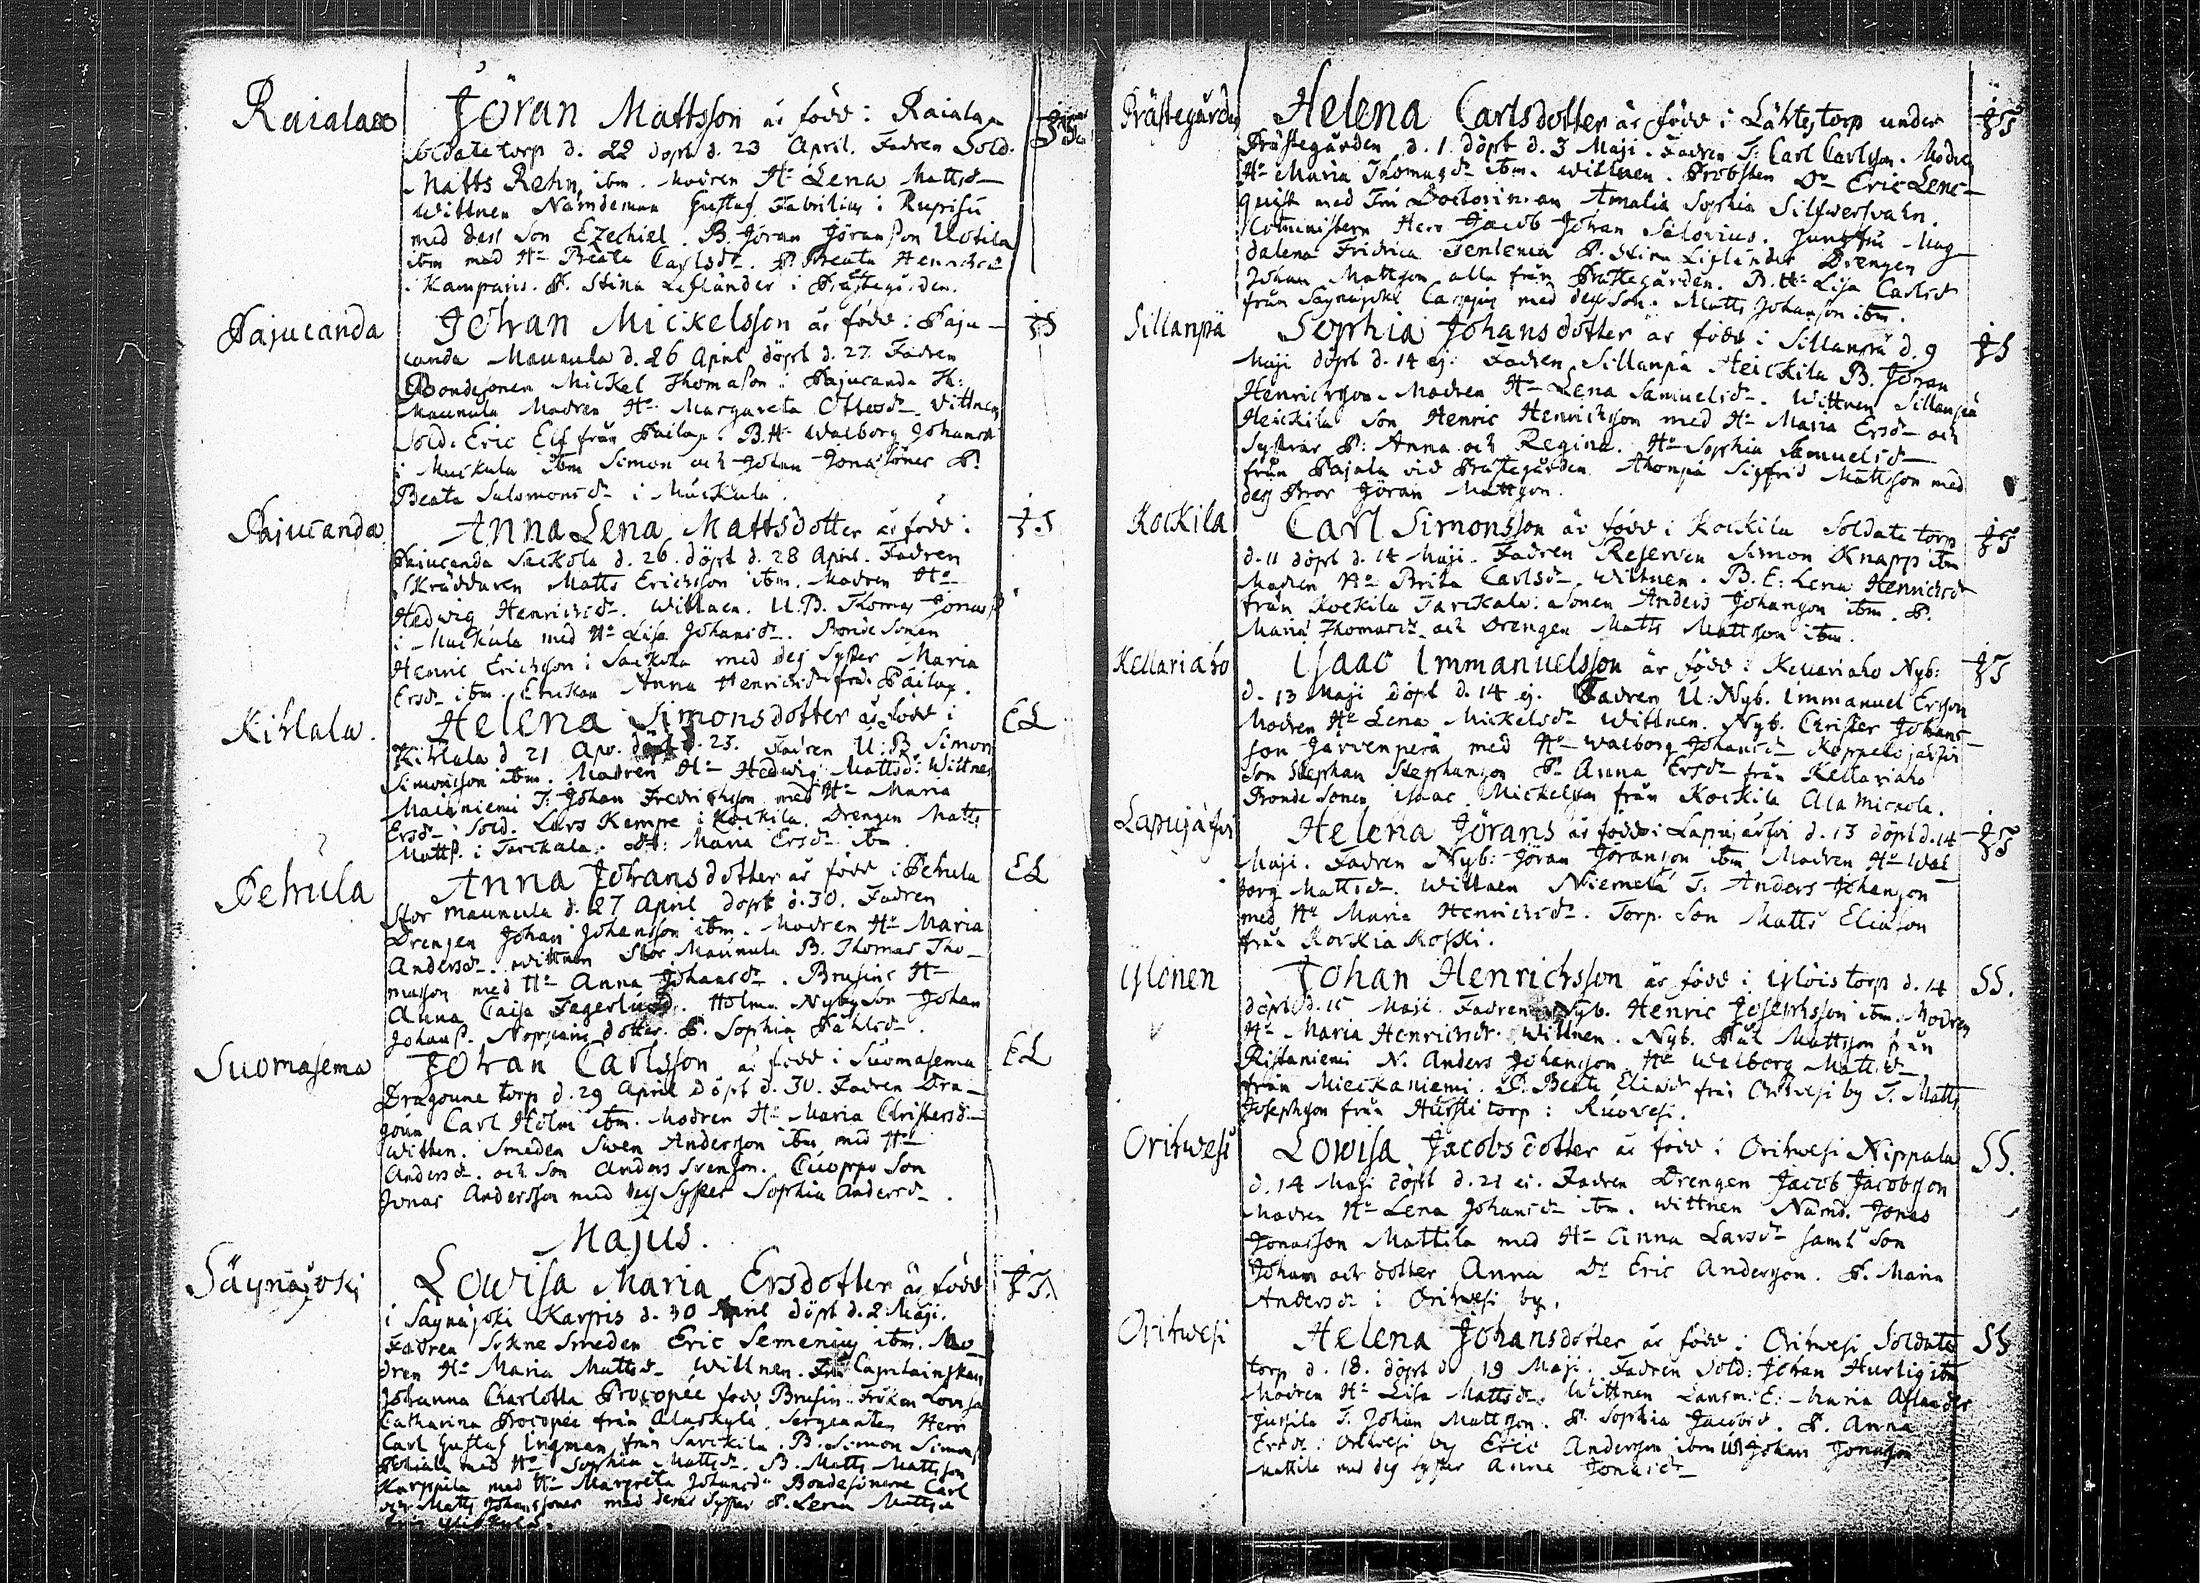 Raiala
Jöran Mattsson är född i Raiala
Soldate torp d. 22 döpt d. 23 April. Fadren Sold.
Matts Rehn, ibm. Modren Ha Lena Mattsdr
Wittnen Nämdeman Gustaf Fabrilius i Ruprisu
med dess Son Ezechiel. B. Jöran Jöranson Uotila
ibm med Ha Beata Carlsdr. P. Beata Henricsdr
i Kamparis. P. Stina Lifländer i Prästegården.
Pajucanda
Johan Mickelsson är född i Paju-
canda Maunula d. 26 April döpt d. 27. Fadren
Bondesonen Mickel Thomason i Pajucanda
Maunula Modren Ha Margareta Ottosdr. Vittnen
Sold. Eric Elf från Pailax. B. Ha Walborg Johansdr
i Muckula ibm Simon och Johan Jonæsöner P.
Beata Salomonsdr i Muckula.
Pajucanda
Anna Lena Mattsdotter är född i
Pajucanda Sackola d. 26. döpt d. 28 April. Fadren
Skräddaren Matts Ericksson ibm. Modren Ha
Hedwig Henricsdr. Wittnen. U.B. Thomas Jonas
i Muckula med Ha Lisa Johansdr. Bonde Sonen
Henric Ericksson i Sackola med dess Syster Maria
Ersdr ibm. Enckan Anna Henricsdr från Pailax.
Kihlala.
Helena Simonsdotter är född i
Kihlala d 21 Apr. döpt d. 23. Fadren U:B. Simon
Simonsson ibm. Modren Ha Hedwig Mattsdr Wittnen
Mainniemi T: Johan Fredrichsson med Ha Maria
Ersdr Sold. Lars Kempe i Kockila. Drengen Matts
Matts. i Tarckala. Maria Ersdr ibm
EL
Pehula
Anna Johansdotter är född i Pehula
Stor Maunula d. 27 April döpt d. 30. Fadren
Drengen Johan Johansson ibm. Modren Ha Maria
Andersdr. Wittnen Stor Maunula B. Thomas Tho-
masson med Ha Anna Johansdr. Brusins Ha
Anna Caisa Fagerlund. Holma Nyby Son Johan
Johans. dotter. P. Sophia Påhlsdr.
EL
Suomasema
Johan Carlsson är född i Suomasema
Dragoune torp d. 29 April döpt d. 30. Fadren Dra-
goun Carl Holm ibm. Modren Ha Maria Christersdr
Wittn. Smeden Swen Andersson ibm med Ha
Andersdr. och Son Anders Svenson. Cuoppo Son
Jonas Andersson med dess Syster Sophia Andersdr.
EL
Majus.
Säynäjoki
Lowisa Maria Ersdotter är född
i Säynäjoki Karpis d. 30 April döpt d. 2 Maji.
Fadren Sokne Smeden Eric Semenius ibm. Mo-
dren Ha Maria Mattsdr. Wittnen. Fru Capitainskan
Johanna Charlotta Procopée född Brusin. Fröken Lovisa
Catharina Procopée från Alaskylä. Sergeanten Herr
Carl Gustaf Ingman från Sarckila. B. Simon Simons
med Ha Sophia Mattsdr. B. Matts Mattsson
Karppila med Ha Margreta Johansdr Bondesönerne Carl
och Matts Johanssöner med deras Syster P. Lena Mattsdr
Prästegården
Helena Carlsdotter är född i Lähtestorp under
Prästegården d. 1. döpt d. 3 Maji. Fadren T: Carl Carlsson. Modren
Ha Maria Thomasdr ibm. Wittnen. Probsten Dr Eric Lenc-
quist med Fru Doctorinnan Amalia Sophia Silfwersvahn.
Comministern Herr Jacob Johan Salovius. Jungfru Mag-
dalena Fridrica Tenlenia P. Stina Lifländer Drengen
Johan Mattsson alla från Prästegården. B. Ha Lisa Carlsdr
från Saynajoki Carpis med dess Son. Matts Johanson ibm.
Sillanpä
Sophia Johansdotter är född i Sillanpä d. 9
Maji döpt d. 14 ej. Fadren Sillanpä Heickila B. Jöran
Henricksson. Modren Ha Lena Samuelsdr. Wittnen Sillanpä
Heickila Son Henric Henricksson med Ha Maria Ersdr och
Systrar P: Anna och Regina. Ha Sophia Samuelsdr
från Pajala vid Prästegården. Ahonpä Sigfrid Mattsson med
dess Bror Jöran Mattsson.
Kockila
Carl Simonsson är född i Kockila Soldate torp
d. 11 döpt d. 14 Maji. Fadren Reserven Simon Knapp ibm
Modren Ha Brita Carlsdr. Wittnen. B. E: Lena Henricsdr
från Kockila Tarckala: Sonen Anders Johansson ibm. P.
Maria Thomasdr och Drengen Matts Mattsson ibm.
Kellariaho
Isaac Immanuelsson är född i Kellariaho Nyb:
d. 13 Maji döpt d. 14 ej. Fadren U:Nyb. Immanuel Ersson
Modren Ha Lena Mickelsdr Wittnen. Nyb. Christer Johans-
son Järvenperä med Ha Walborg Johansdr Koppelojärfvi
Son Stephan Stephanson P. Anna Ersdr från Kellariaho
Bonde Sonen Isaac Mickelsson från Kockila Ala Mickola.
Lapujärfvi
Helena Jörans är född i Lapujärfvi d. 13 döpt d. 14
Maji. Fadren Nyb: Jöran Jöranson ibm Modren Ha Wal-
borg Mattsdr. Wittnen Niemelä T: Anders Johanson
med Ha Maria Henricsdr. Torp. Son Matts Eliason
från Korkiakoski.
Ylönen
Johan Henricksson är född i Ylöis torp d. 14
döpt d. 15 Maji. Fadren Nyb. Henric Josephsson ibm. Modren
Ha Maria Henricsdr. Wittnen. Nyb. Påhl Mattsson från
Ristaniemi N. Anders Johansson Ha Walborg Mattsdr
från Mieckaniemi. P. Beata Eliasdr från Orihwesi by T. Matts
Josephson från Hursti torp i Ruowesi.
SS.
Orihwesi
Lowisa Jacobsdotter är född i Orihwesi Nippala
d. 14 Maji döpt d. 21 ej. Fadren Drengen Jacob Jacobsson
Modren Ha Lena Johansdr ibm. Wittnen Nämd. Jonas
Jonasson Mattila med Ha Anna Larsdr samt Son
Johan och dotter Anna Dr Eric Andersson. P. Maria
Andersdr i Orihwesi by.
SS.
Orihwesi
Helena Johansdotter är född i Orihwesi Soldate
torp d. 18. döpt d. 19 Maji. Fadren Sold: Johan Hurtig ibm
Modren Ha Lisa Mattsdr. Wittnen Länsm: E: Maria Aflander
Jussila T. Johan Mattsson. P. Sophia Jacobsdr. P. Anna
Ersdr i Orihwesi by Eric Andersson ibm Johan Jonasson
Mattila med dess syster Anna Jonasdr
SS